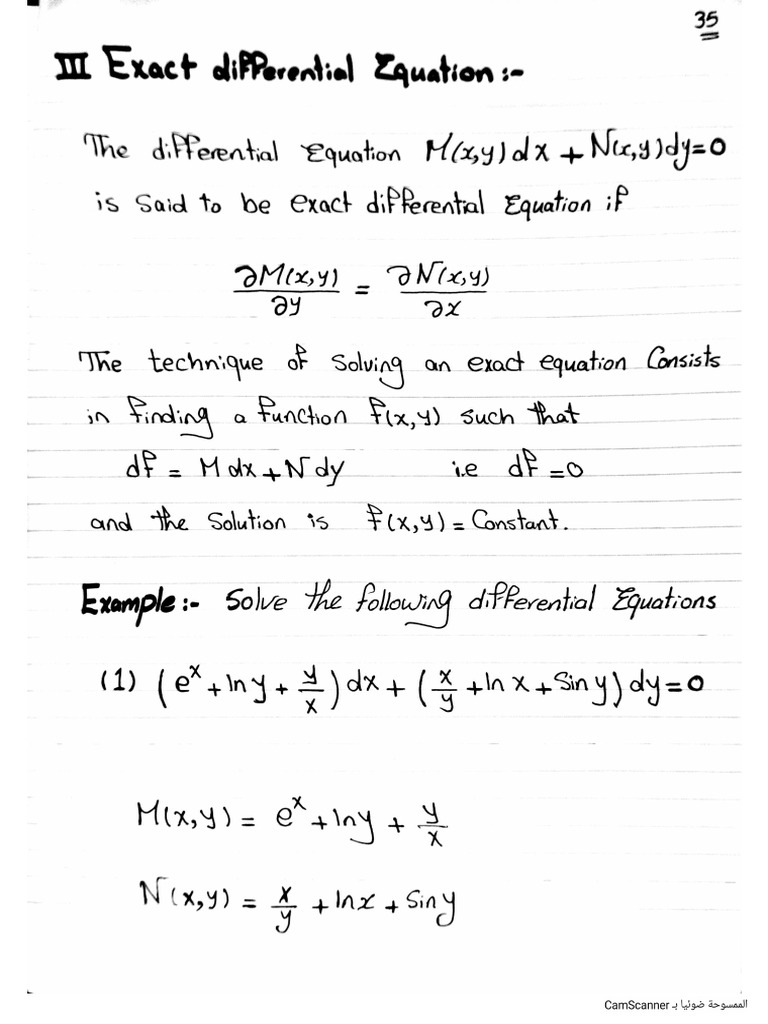 35
III Exact differential Equation:-
The differential Equation M(x,y)dx + N(x,y)dy=0
is said to be exact differential Equation if
∂M(x,y)/∂y = ∂N(x,y)/∂x
The technique of solving an exact equation Consists
in finding a function f(x,y) such that
df = M dx + N dy i.e df = 0
and the solution is f(x,y) = Constant.
Example:- Solve the following differential Equations
(1) (e^x + ln y + y/x) dx + (x/y + ln x + Sin y) dy = 0
M(x,y) = e^x + ln y + y/x
N(x,y) = x/y + ln x + Sin y
الممسوحة ضوئيا بـ CamScanner